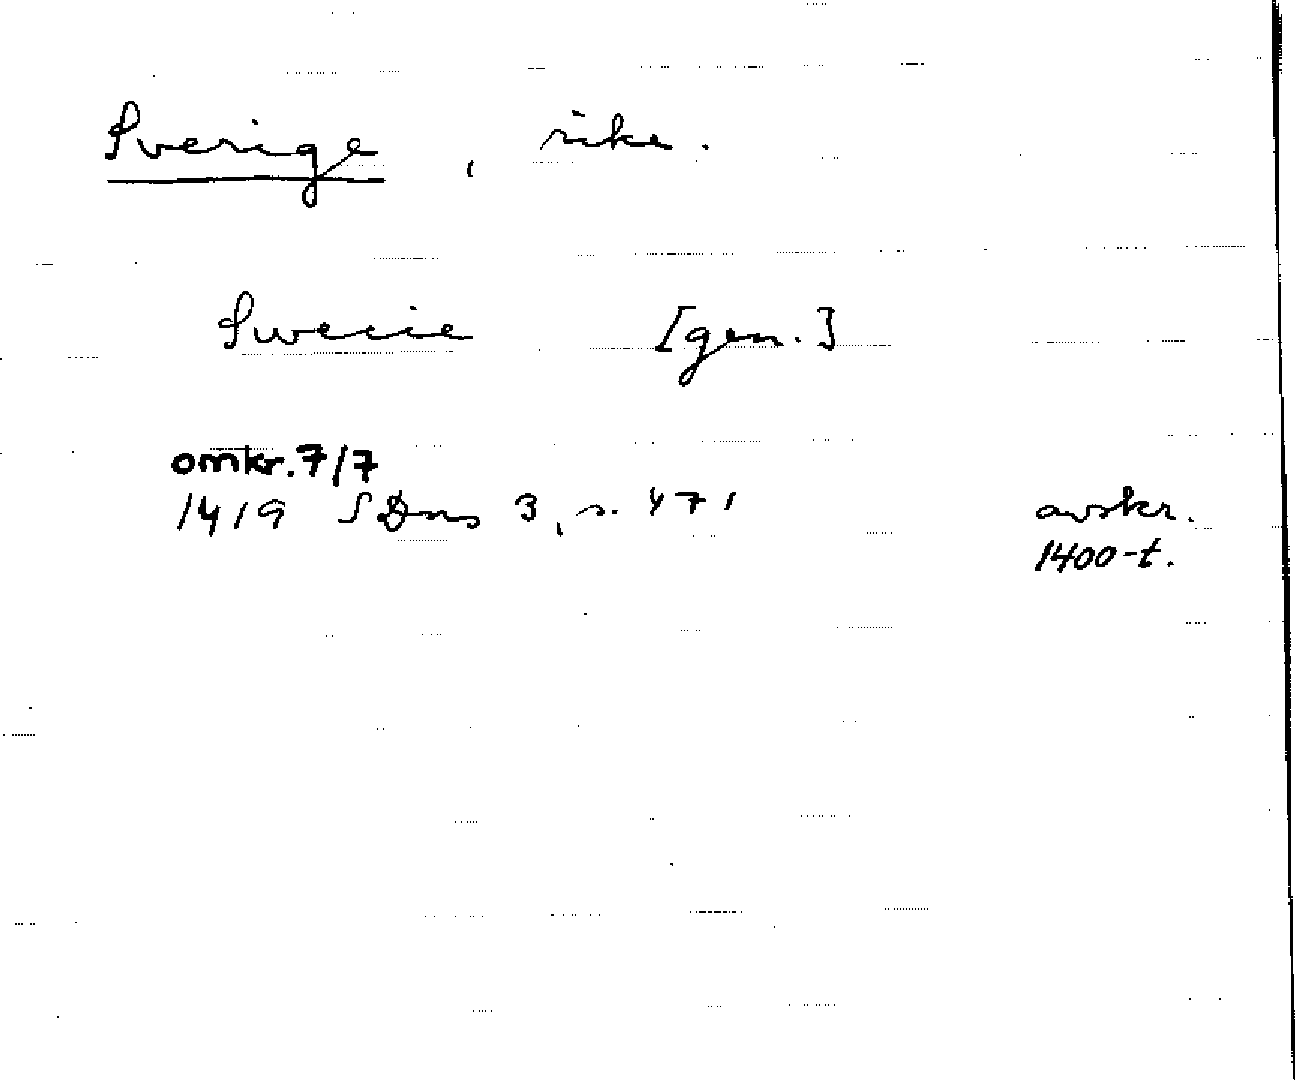 Sverige, rike.
Swecie [gen.]
omkr. 7/7
1419 SDns 3, s. 471 avskr.
1400-t.